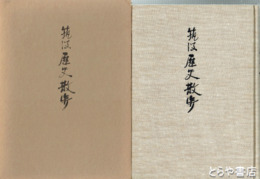 筑波歴史散歩
筑波歴史散歩
とらや書店